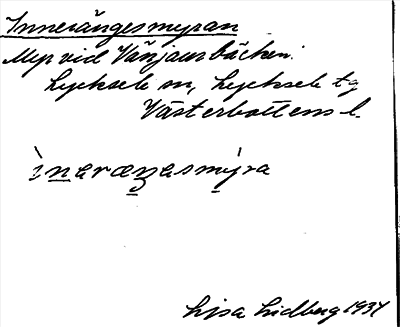 Inneränges myran
Myr vid Vänjaurbäcken.
Lycksele sn, Lycksele tg
Västerbottens l.
ìnəræŋəsmýra
Lisa Lidberg 1934